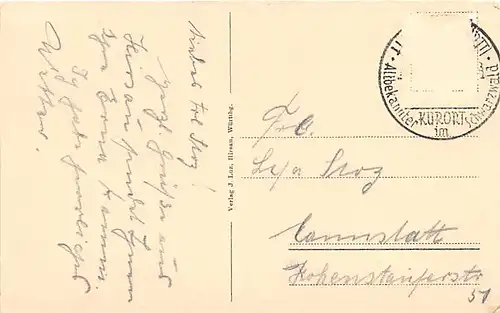 Liebes Frl. Stoz!
Herzl. Grüße aus
Hirsau sendet Ihnen
Ihre Erna Kamm.
Ich habe herrliches
Wetter.
Verlag J. Luz, Hirsau, Württbg.
Altbekannter
KURORT
im
Schwarzwald
Frl.
Stoz
Cannstatt
Hohenstaufenstr
51